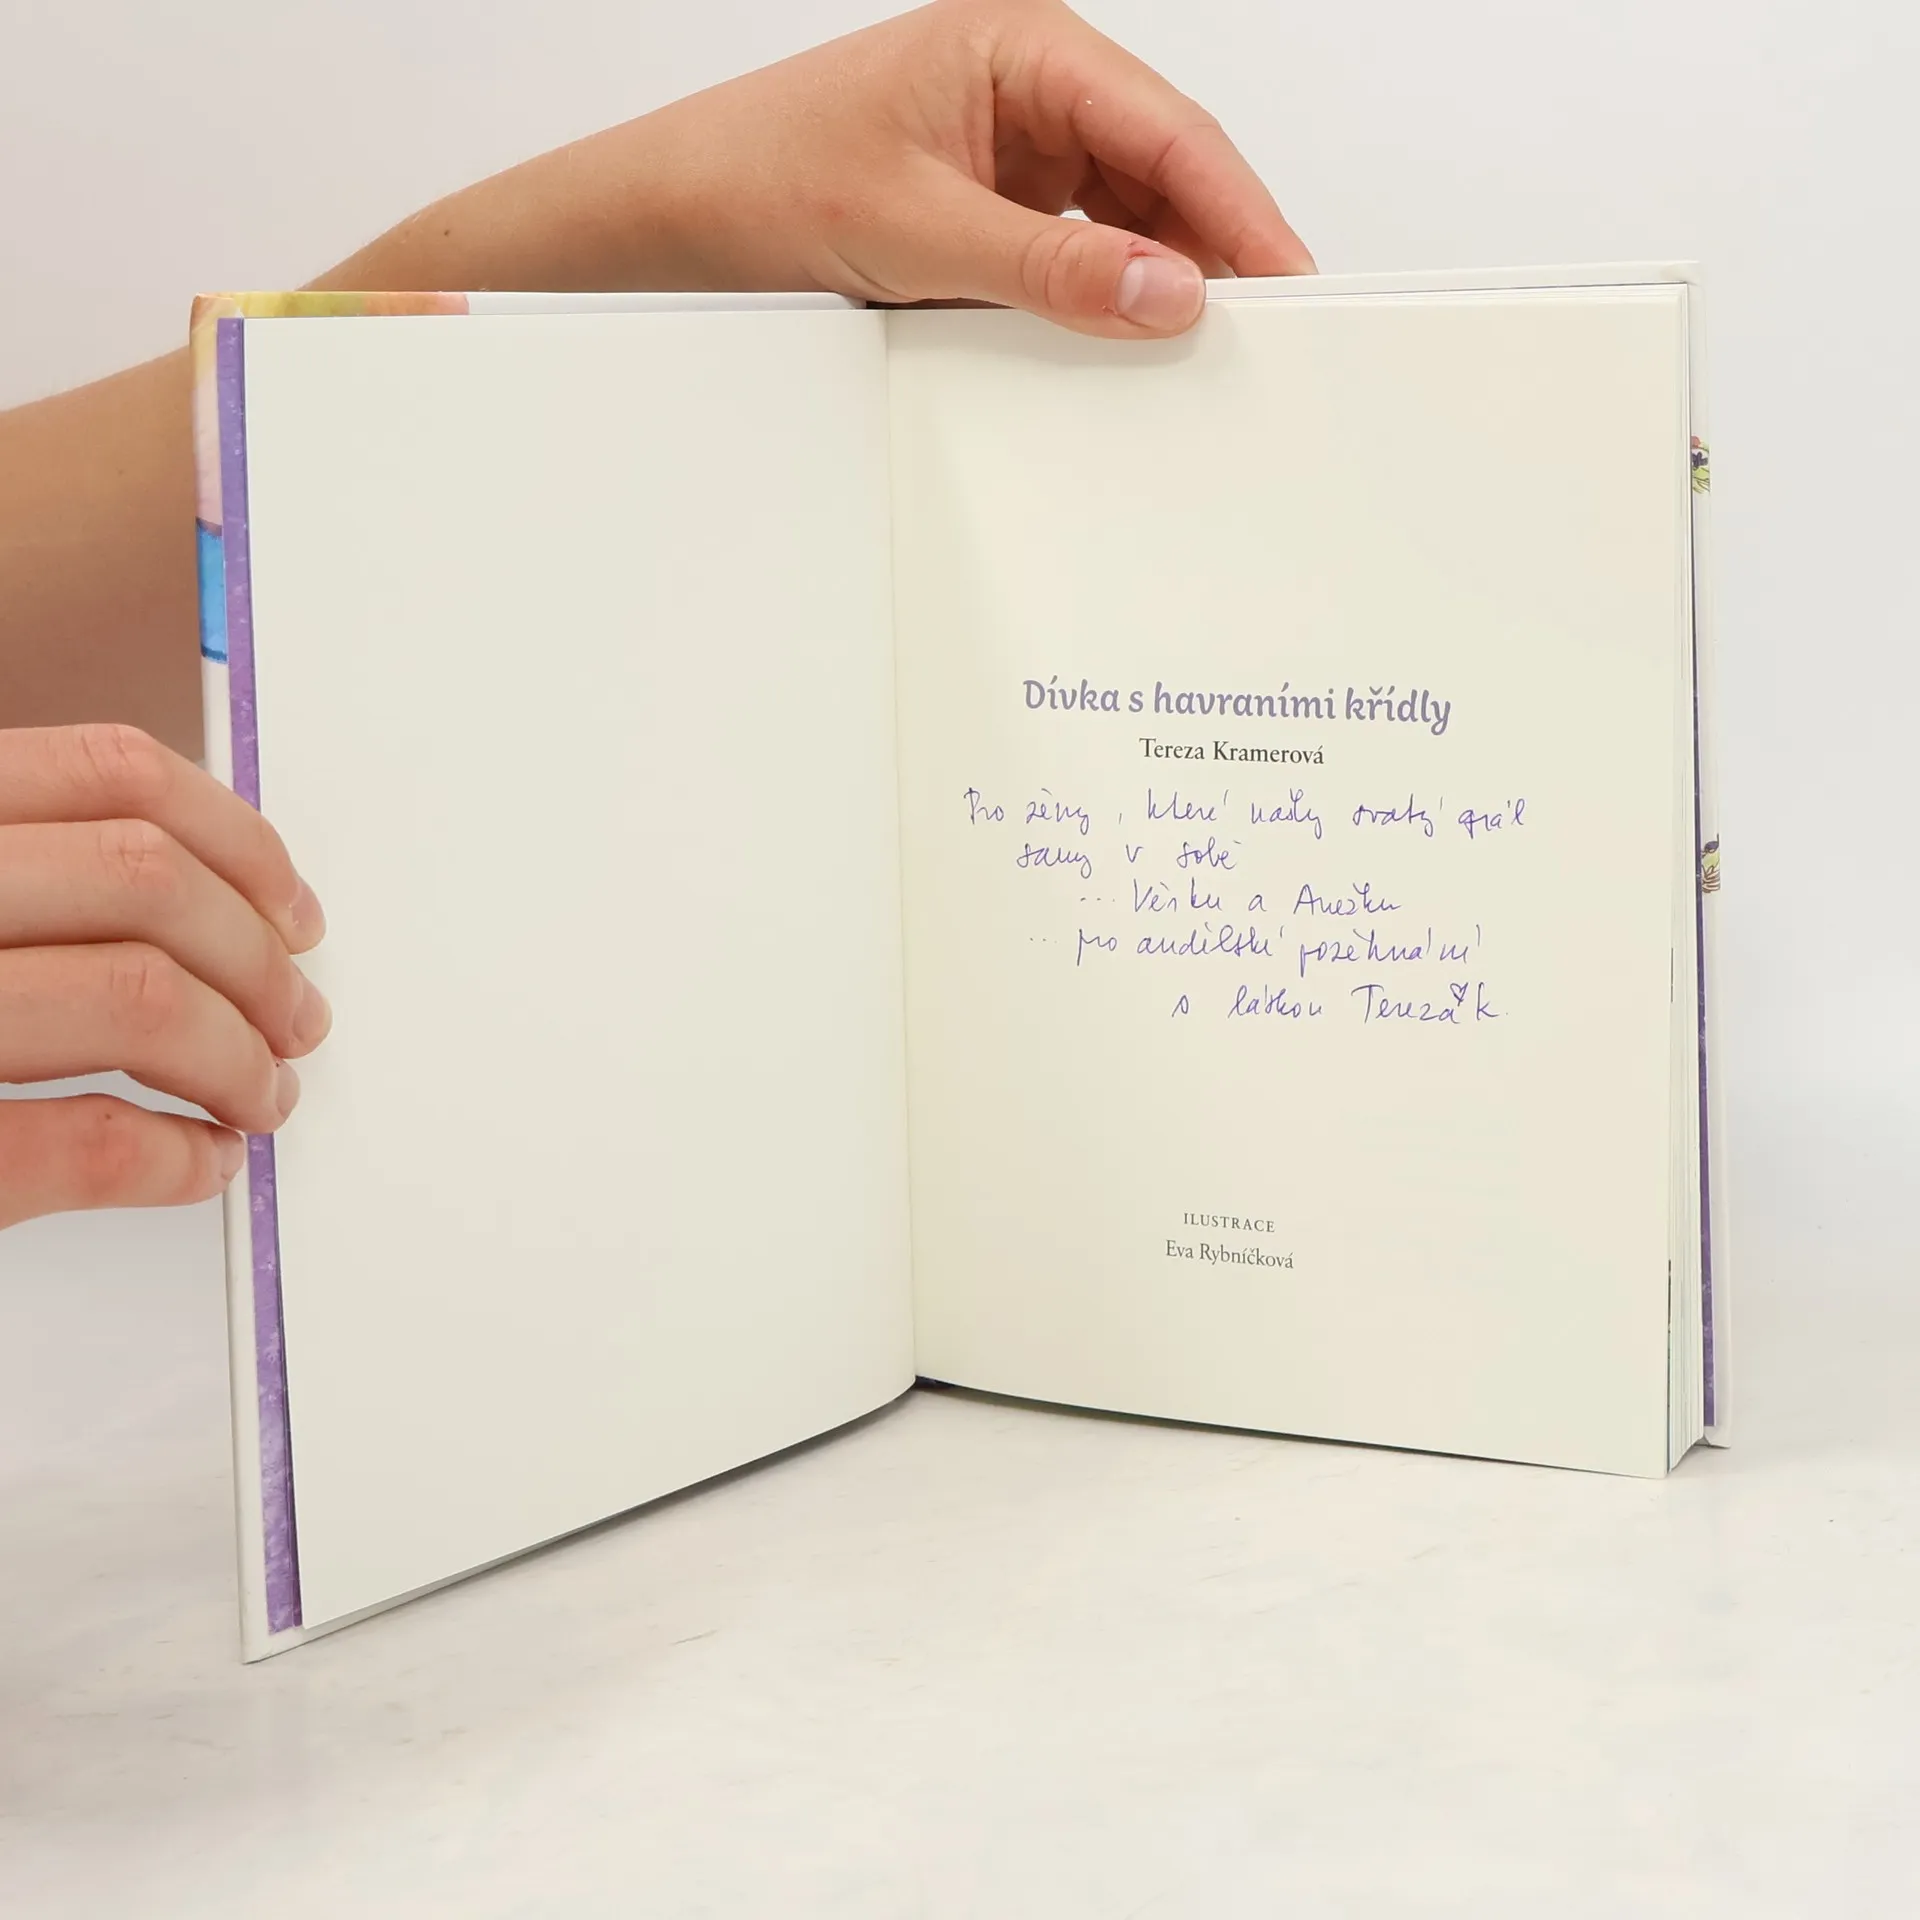 Dívka s havraními křídly
Tereza Kramerová
Pro ženy, které našly svatý grál
samy v sobě
... Věrku a Anežku
... pro andělské požehnání
s láskou Tereza K.
ILUSTRACE
Eva Rybníčková